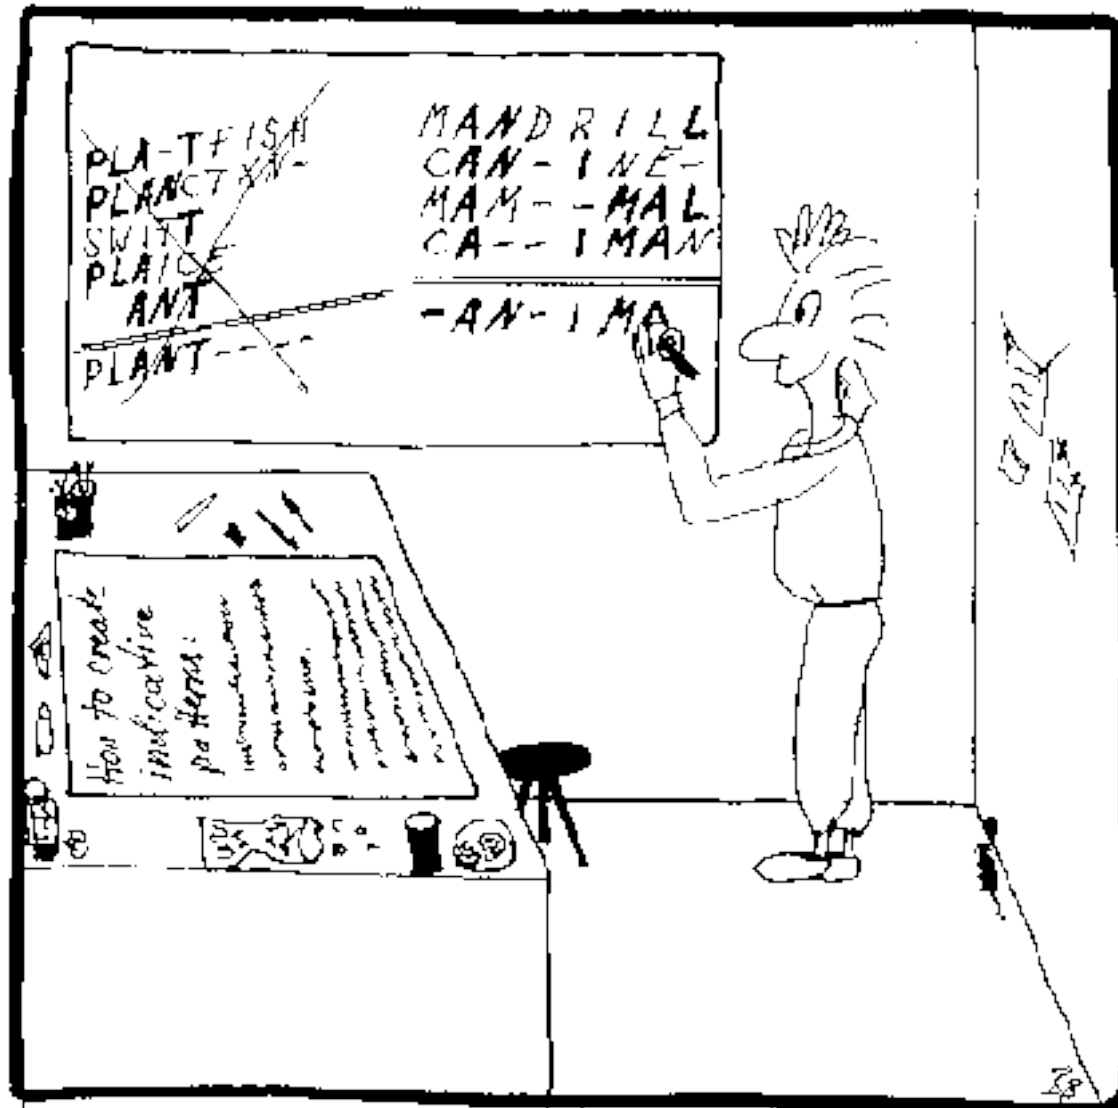 PLA-TFISH
PLANCTON-
SWIFT
PLAICE
ANT
PLANT----
MANDRILL
CAN-INE-
MAM--MAL
CA--IMAN
-AN-IMA
How to create
indicative
patterns: